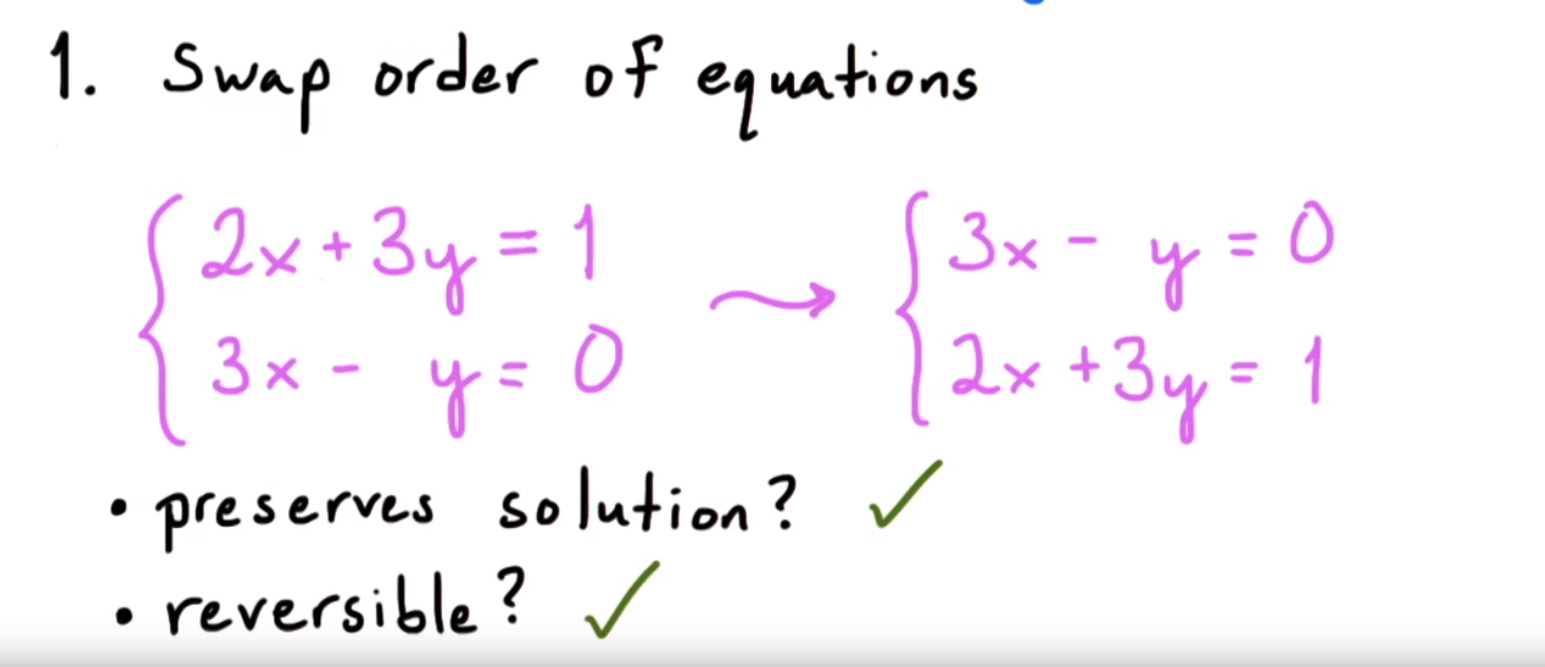 1. Swap order of equations
{ 2x + 3y = 1 ⤳ { 3x - y = 0
3x - y = 0 2x + 3y = 1
• preserves solution? ✓
• reversible? ✓